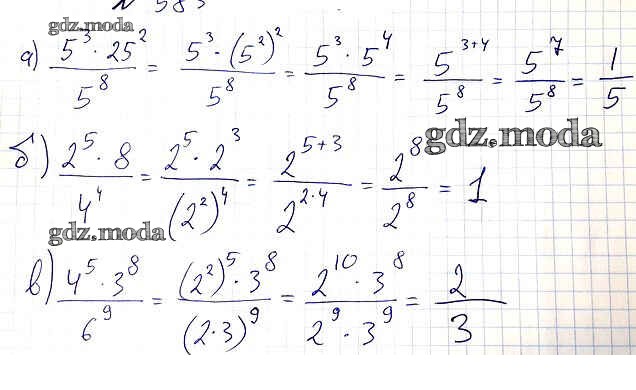 № 583
gdz.moda
а) (5³ · 25²)/5⁸ = (5³ · (5²)²)/5⁸ = (5³ · 5⁴)/5⁸ = 5³⁺⁴/5⁸ = 5⁷/5⁸ = 1/5
gdz.moda
б) (2⁵ · 8)/4⁴ = (2⁵ · 2³)/(2²)⁴ = 2⁵⁺³/2²·⁴ = 2⁸/2⁸ = 1
gdz.moda
в) (4⁵ · 3⁸)/6⁹ = ((2²)⁵ · 3⁸)/(2·3)⁹ = (2¹⁰ · 3⁸)/(2⁹ · 3⁹) = 2/3